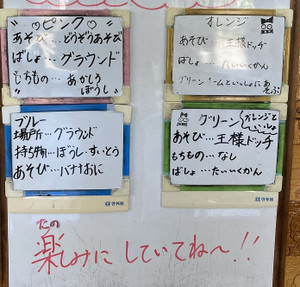 ピンク
あそび…どろぞうあそび
ばしょ…グラウンド
もちもの…あかしろ
ぼうし
オレンジ
あそび…王様ドッヂ
ばしょ…たいいくかん
グリーンチームといっしょにあそぶ
ブルー
場所…グラウンド
持ち物…ぼうし・すいとう
あそび…バナナおに
グリーン(オレンジと
あそび…王様ドッヂ
もちもの…なし
ばしょ…たいいくかん
たの
楽しみにしていてね～!!